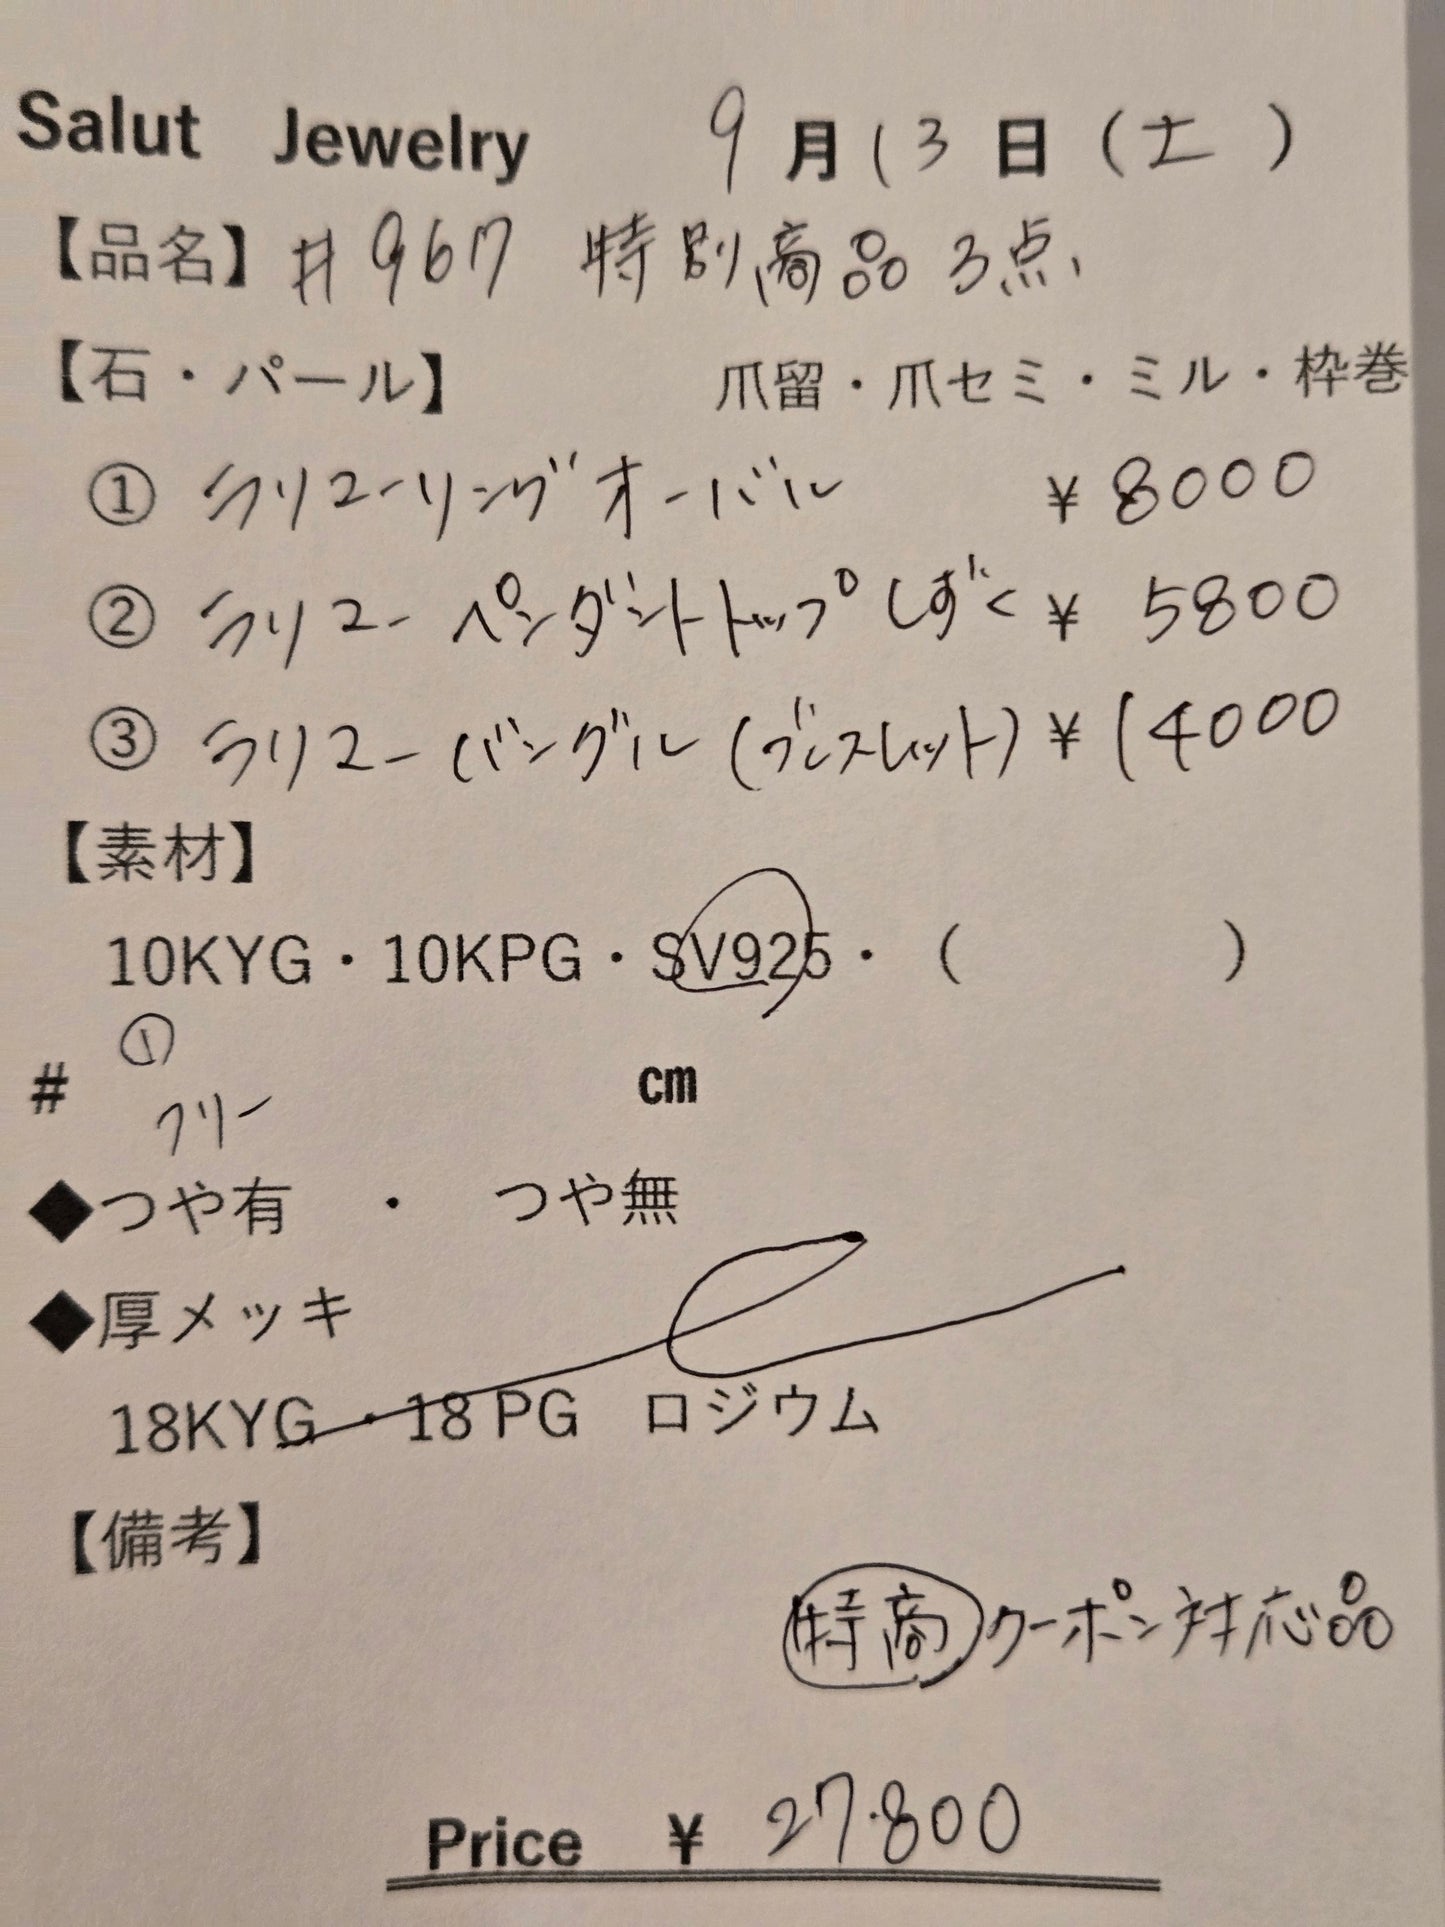 Salut Jewelry 9月13日(土)
【品名】#967 特別商品3点
【石・パール】 爪留・爪セミ・ミル・枠巻
① ラリマーリングオーバル ¥8000
② ラリマーペンダントトップしずく ¥5800
③ ラリマーバングル(ブレスレット) ¥14000
【素材】
10KYG・10KPG・SV925・( )
①
# フリー cm
◆つや有 ・ つや無
◆厚メッキ
18KYG・18 PG ロジウム
【備考】
特商 クーポン対応品
Price ¥ 27.800